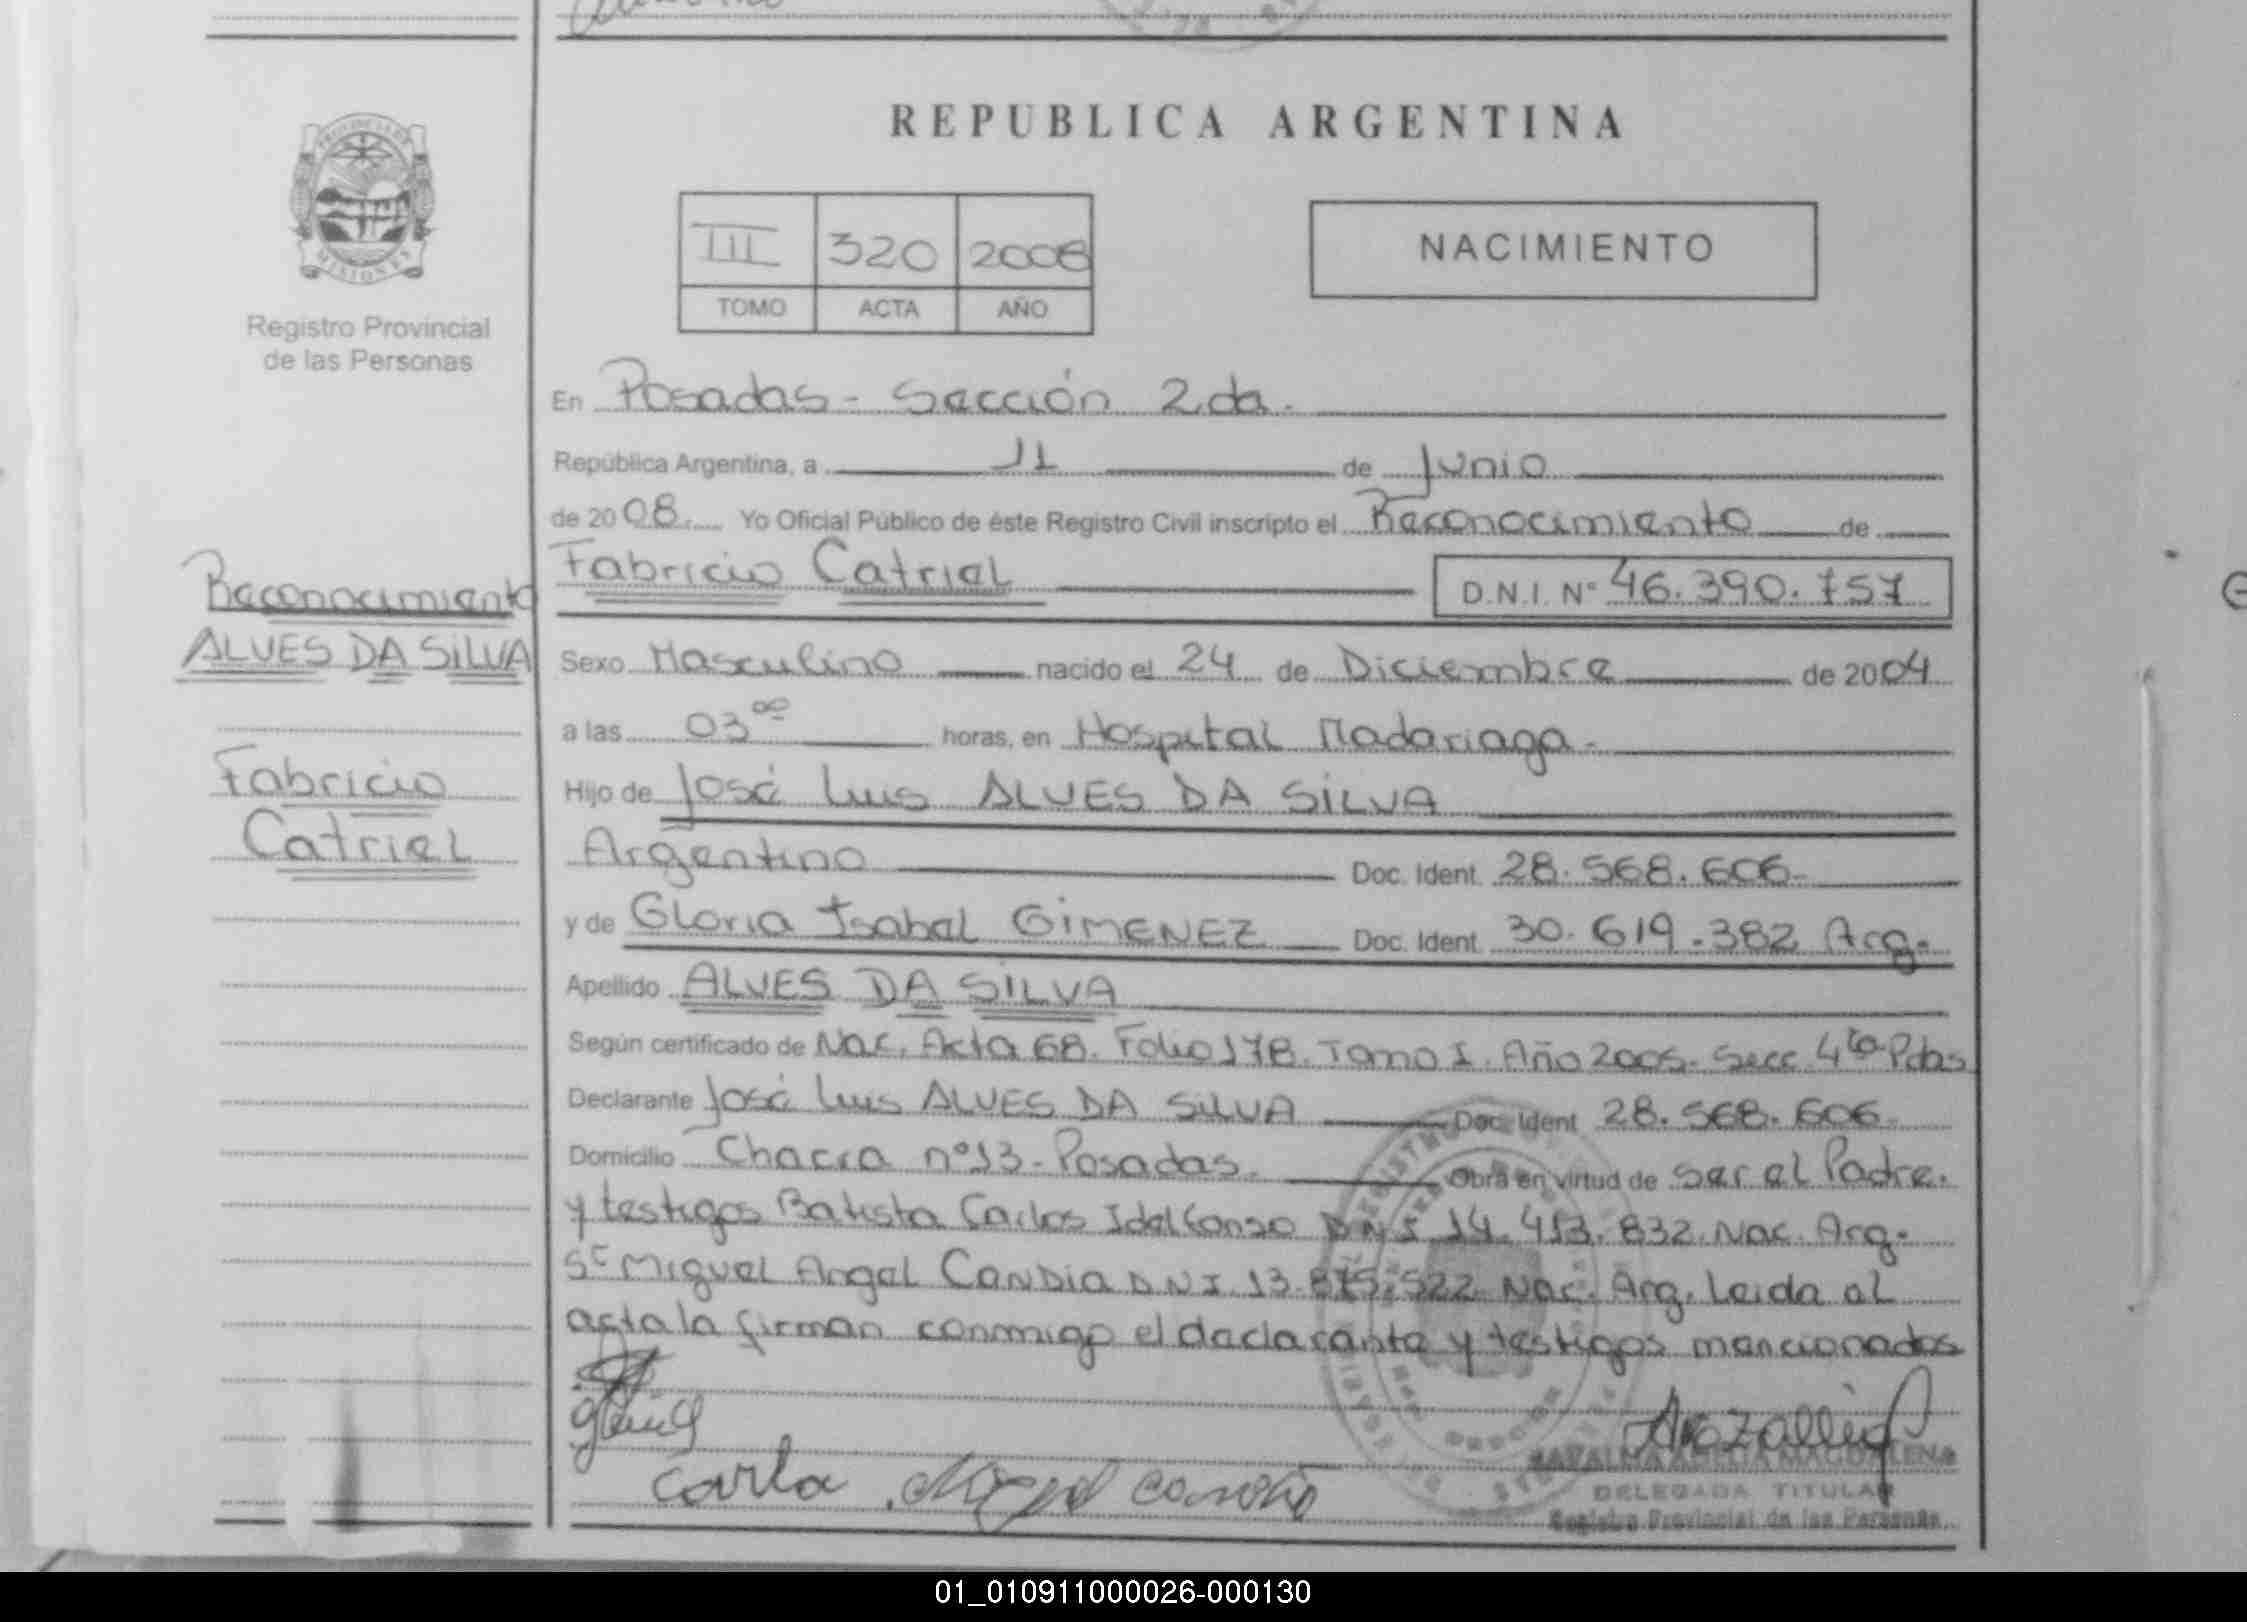 REPUBLICA ARGENTINA
PROVINCIA DE
MISIONES
Registro Provincial
de las Personas
III 320 2008
TOMO ACTA AÑO
NACIMIENTO
En Posadas - Sección 2da.
República Argentina, a 11 de Junio
de 2008. Yo Oficial Público de éste Registro Civil inscripto el Reconocimiento de
Fabricio Catriel D.N.I. Nº 46.390.757
Reconocimiento
ALVES DA SILVA
Fabricio
Catriel
Sexo Masculino nacido el 24 de Diciembre de 2004
a las 03⁰⁰ horas, en Hospital Madariaga.
Hijo de José Luis ALVES DA SILVA
Argentino Doc. Ident. 28.568.606.
y de Gloria Isabel GIMENEZ Doc. Ident. 30.619.382 Arg.
Apellido ALVES DA SILVA
Según certificado de Nac. Acta 68. Folio 178. Tomo I. Año 2005. Secc. 4ta Pdas
Declarante José Luis ALVES DA SILVA Doc. Ident. 28.568.606.
Domicilio Chacra nº13 - Posadas. Obra en virtud de ser el Padre.
y testigos Batista Carlos Idelfonso DNI 14.413.832. Nac. Arg.
Sr Miguel Angel CANDIA DNI 13.875.522 Nac. Arg. Leida al
acta la firman conmigo el declarante y testigos mencionados
Carla Miguel Candia
MAGDALENA
DELEGADA TITULAR
Registro Provincial de las Personas
01_010911000026-000130